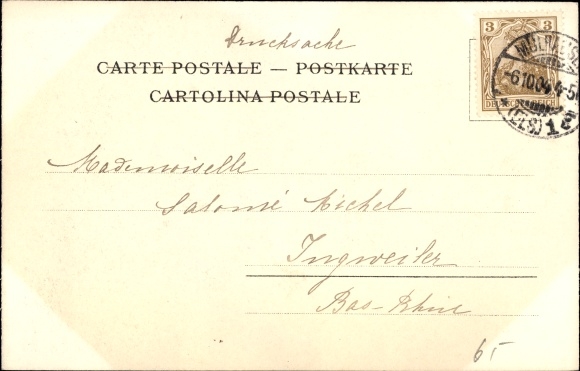 Drucksache
CARTE POSTALE — POSTKARTE
CARTOLINA POSTALE
3 3
DEUTSCHES REICH
MÜLHAUSEN
6 10 04 4-5
(ELS) 1 c
Mademoiselle
Salomé Michel
Ingweiler
Bas-Rhin
65